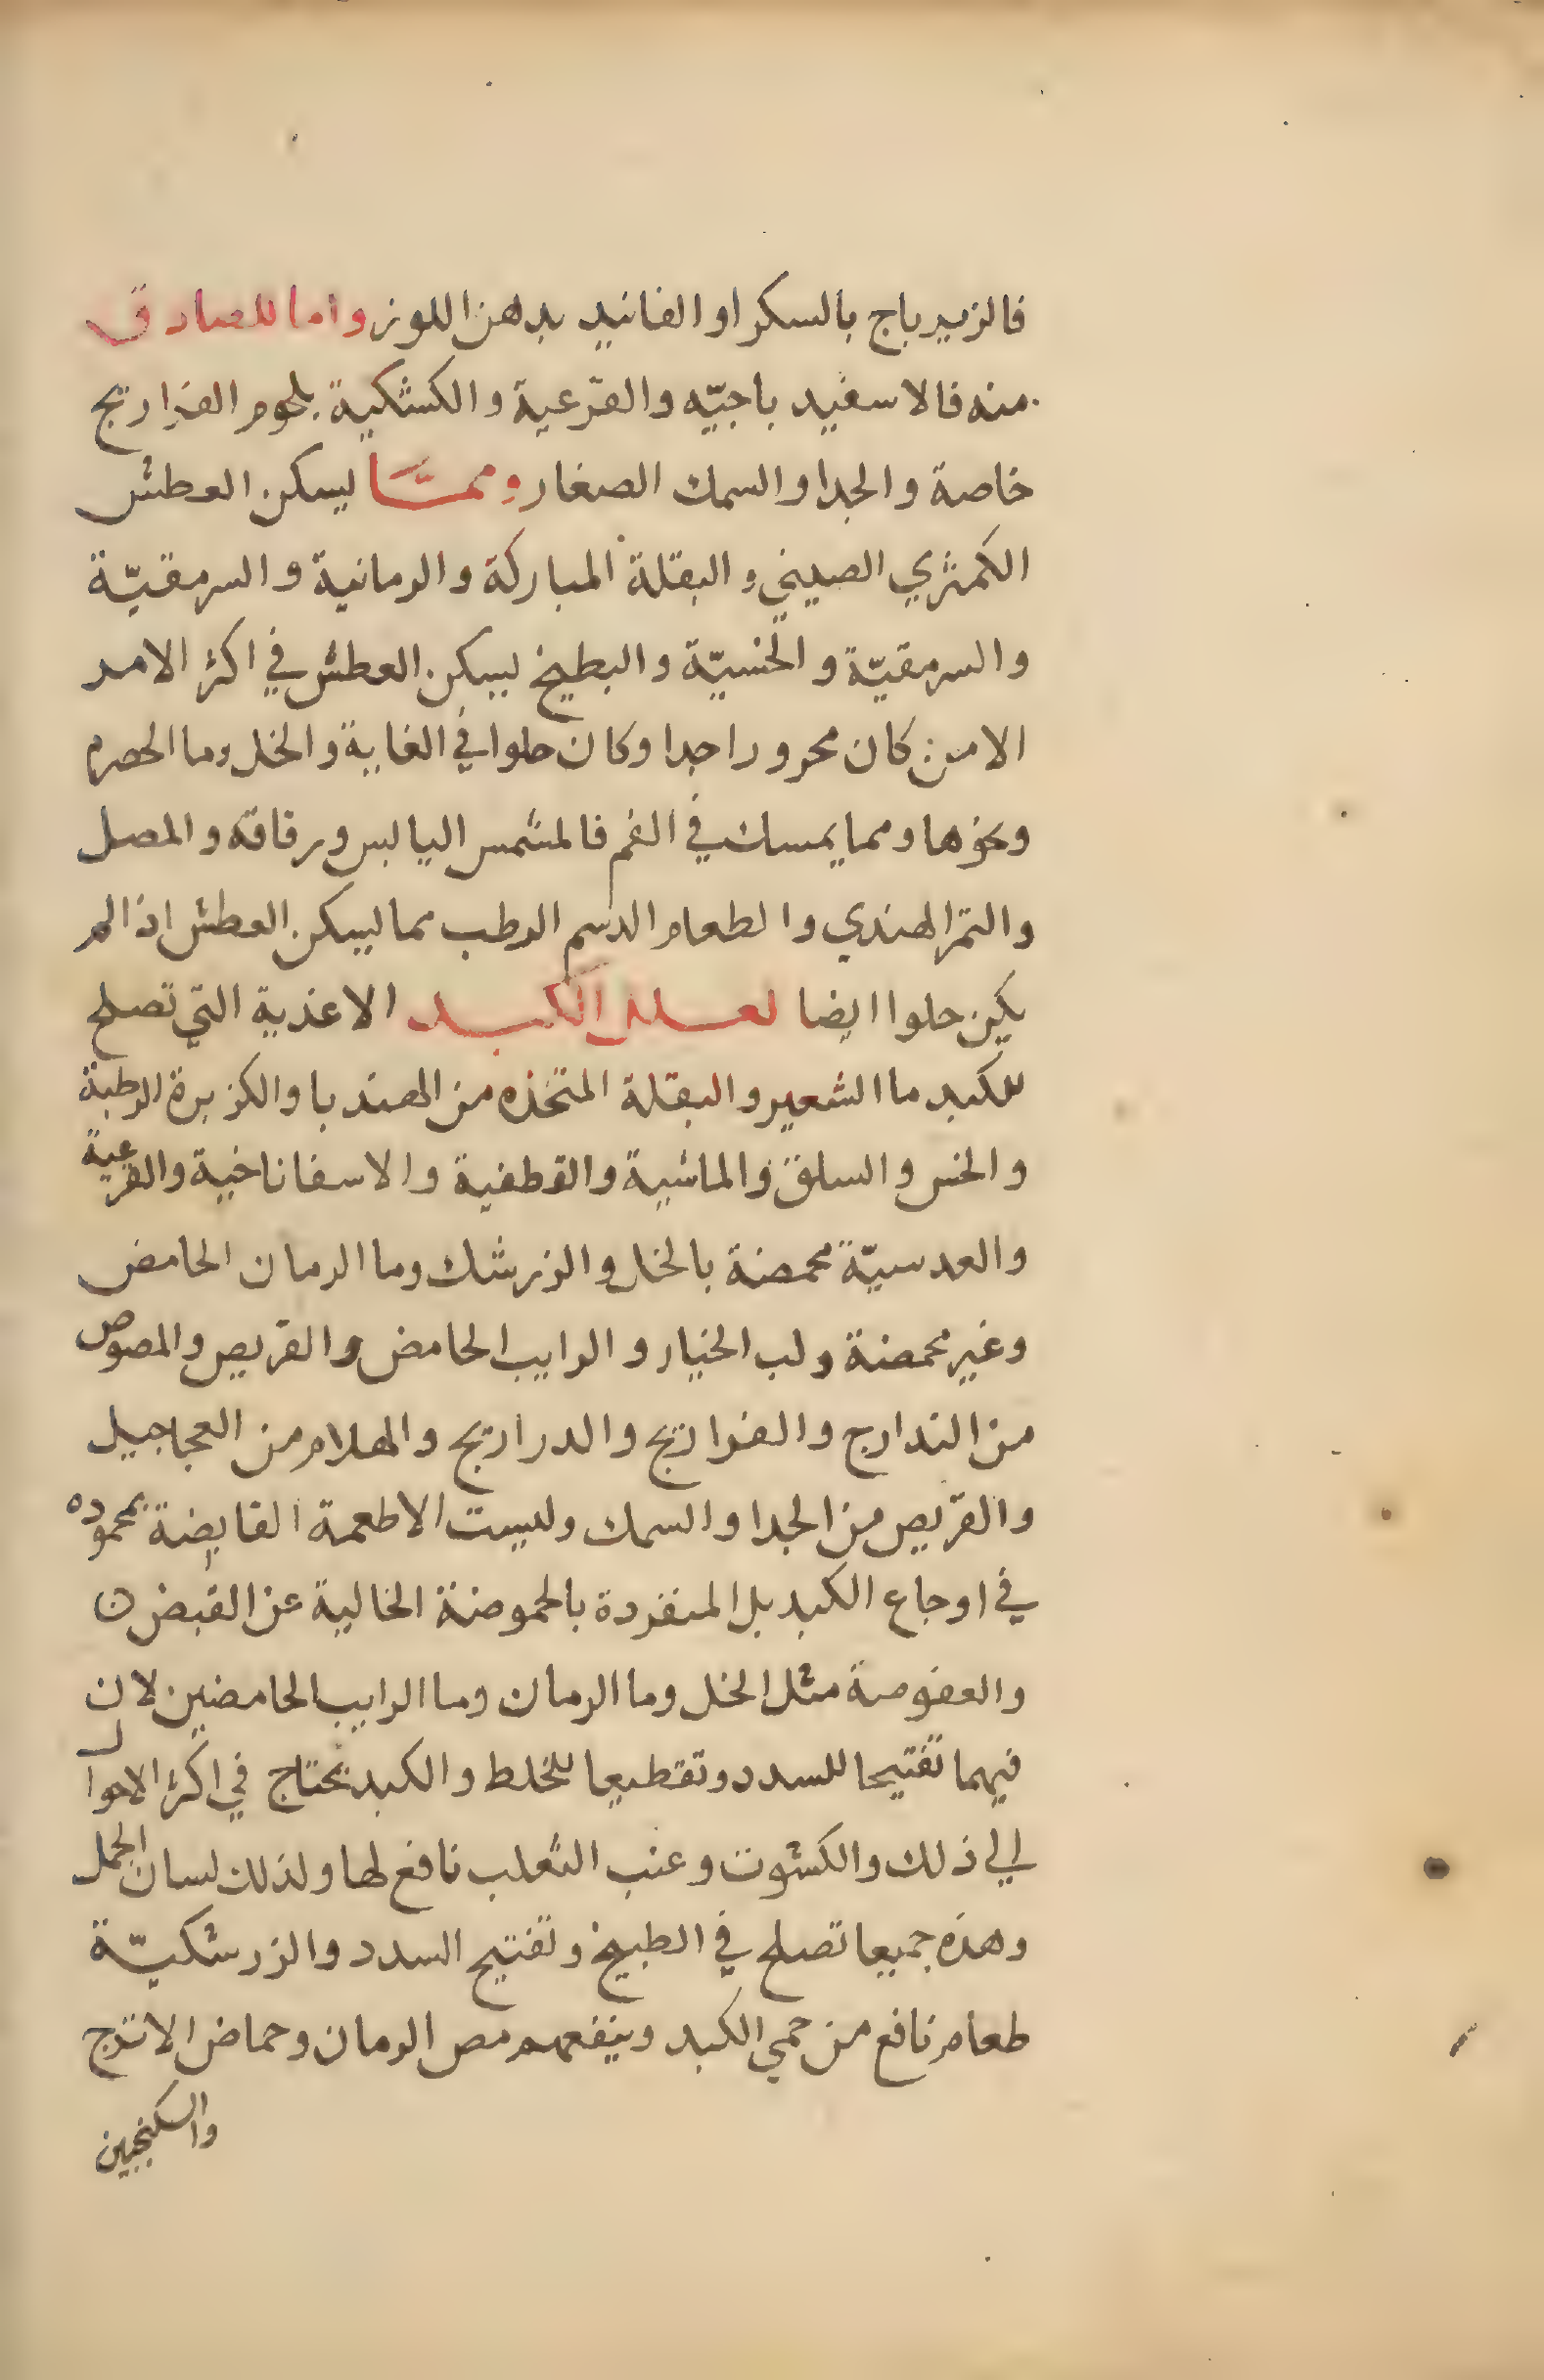 فالزيرباج بالسكر او الفانيد بدهن اللوز واما للصادق
منه فالاسفيد باجيّه والقرعية والكشكية بلحوم الفراريج
خاصة والجدا والسمك الصغار وممّا ليسكن العطش
الكمثري الصيني والبقلة المباركة والرمانية والسرمقيّة
والسرمقيّة والخسيّة والبطيخ ليسكن العطش في اكثر الامد
الا من كان محرورا جدا وكان حلوا في الغاية والخل وما الحصرم
ونحوها ومما يمسك في الفم فالمشمس اليابس ورقاقه والمصل
والتمر الهندي والطعام الدسم الرطب مما ليسكن العطش اذا لم
يكن حلوا ايضا لعلل الكبد الاغذية التي تصلح
للكبد ما الشعير والبقلة المتخذه من الهندبا والكزبرة الرطبة
والخس والسلق والماشية والقطفية والاسفاناخية والقرعية
والعدسيّة محمضة بالخل والزرشك وما الرمان الحامض
وغير محمضة ولب الخيار والرايب الحامض والقريص والمصوص
من التدارج والفراريج والدراريج والهلام من العجاجيل
والقريص من الجدا والسمك وليست الاطعمة القابضة بمحموده
في اوجاع الكبد بل المنفردة بالحموضة الخالية عن القبض ن
والعفوصة مثل الخل وما الرمان وما الرايب الحامضين لان
فيهما تفتيحا للسدد وتقطيعا للخلط والكبد تحتاج في اكثر الاحوال
الي ذلك والكشوت وعنب الثعلب نافع لها ولذلك لسان الحمل
وهذه جميعا تصلح في الطبيخ وتفتيح السدد والزرشكيّة
طعام نافع من حمي الكبد وينفعهم مص الرمان وحماض الاترج
والسكنجبين